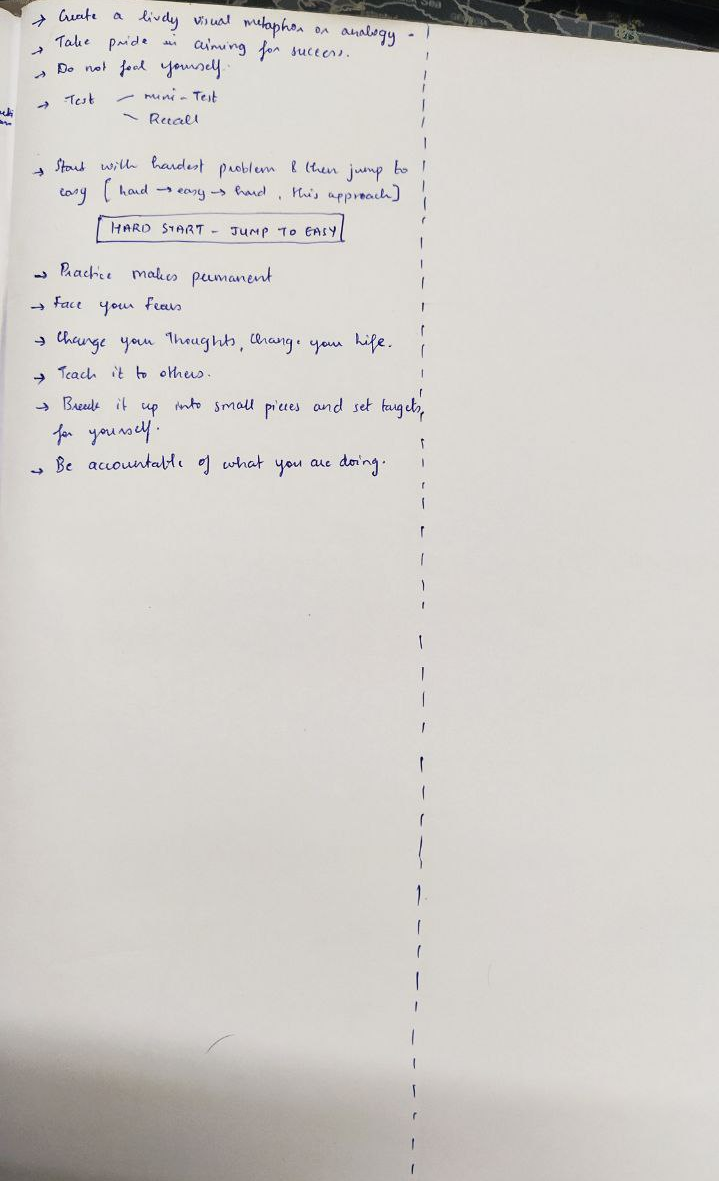 → Create a lively visual metaphor or analogy -
→ Take pride in aiming for success.
→ Do not fool yourself.
→ Test — mini-Test
Recall
→ Start with hardest problem & then jump to
easy [hard → easy → hard, this approach]
HARD START - JUMP TO EASY
→ Practice makes permanent
→ Face your Fears
→ Change your Thoughts, Change your Life.
→ Teach it to others.
→ Break it up into small pieces and set targets
for yourself.
→ Be accountable of what you are doing.